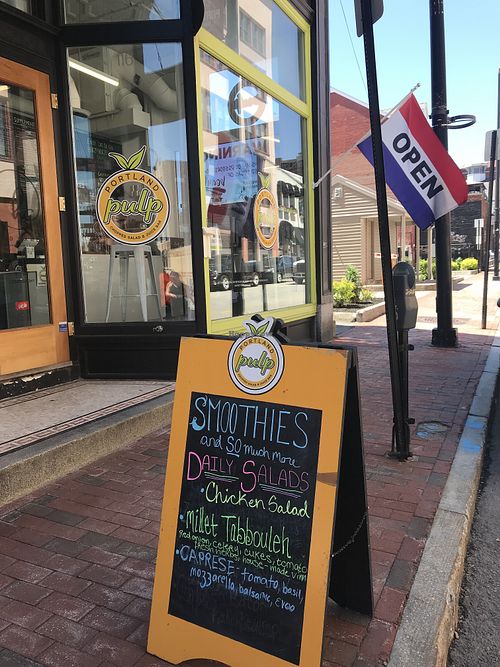 PORTLAND
pulp
OPEN
PORTLAND
pulp
SMOOTHIES
and SO much more
DAILY SALADS
• Chicken Salad
• Millet Tabbouleh
red onion, celery, cukes, tomato,
fresh herbs, house-made vin
• CAPRESE- tomato, basil,
mozzarella, balsamic, EVOO